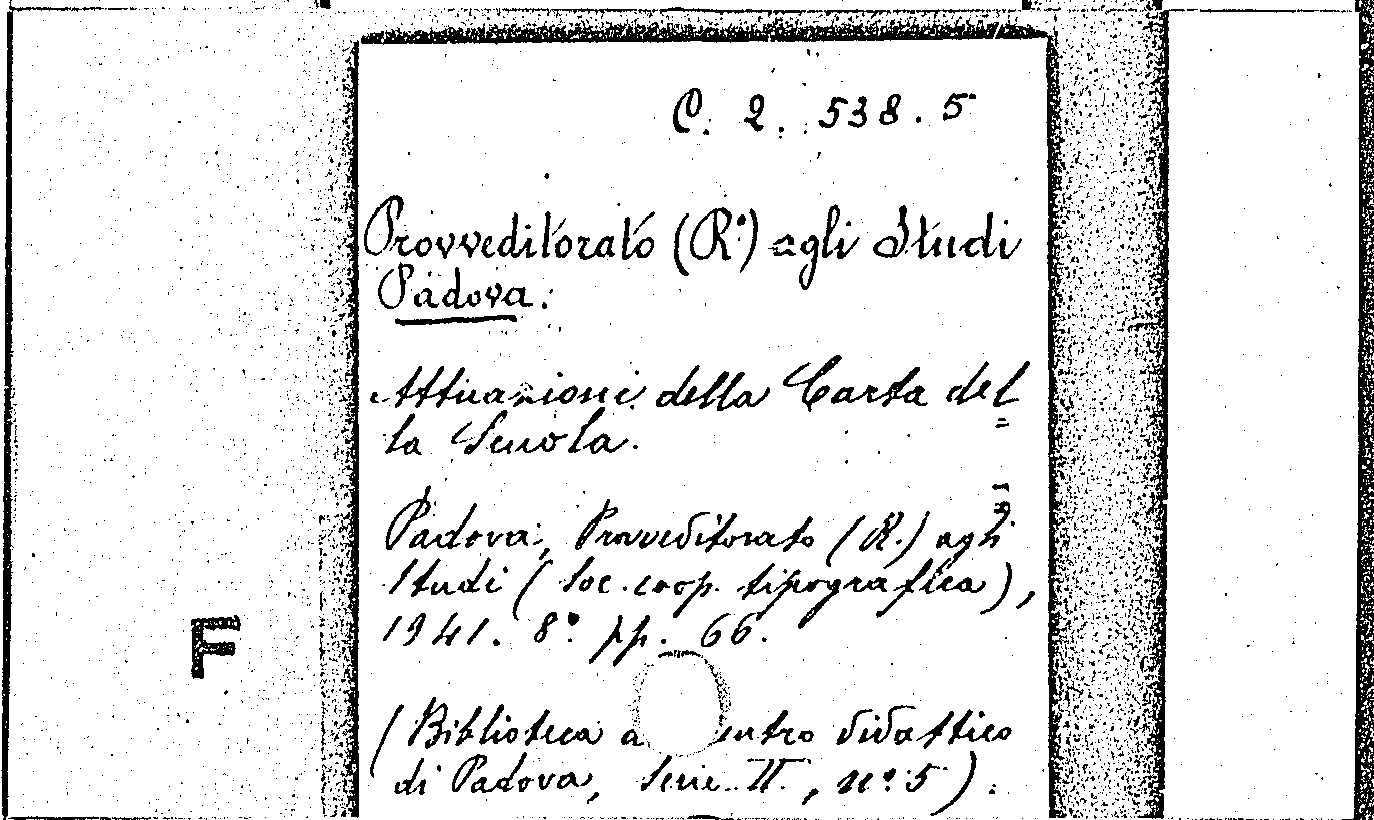 C. 2. 538. 5
Provveditorato (Rº) agli Studi
Padova.
Attuazioni della Carta del=
la Scuola.
Padova, Provveditorato (R.) agli
Studi (Soc. coop. tipografica),
1941. 8º pp. 66.
F
(Biblioteca entro didattico
di Padova, Serie II, nº 5).